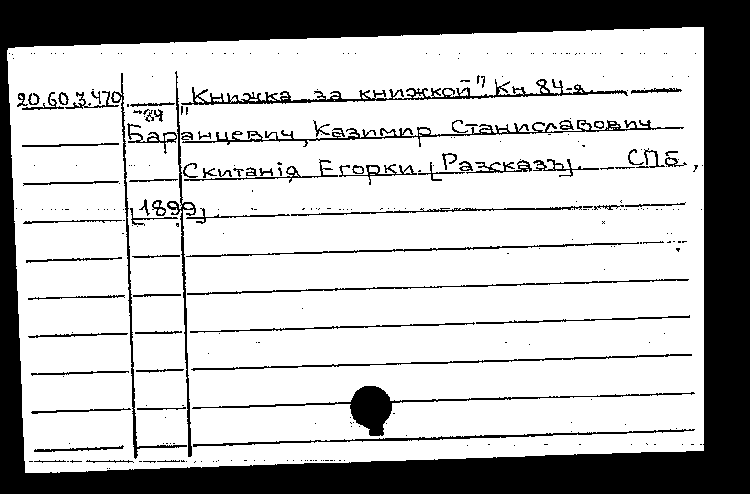 20.60.3.470 "Книжка за книжкой" Кн 84-я
84
Баранцевич, Казимир Станиславович
Скитанія Егорки. [Разсказъ]. СПБ.,
[1899].